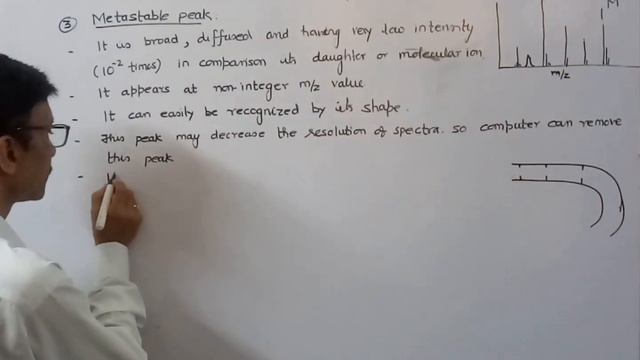 ③ Metastable peak.
- It is broad, diffused and having very low intensity
(10⁻² times) in comparison with daughter or molecular ion
- It appears at non-integer m/z value
- It can easily be recognized by its shape.
- This peak may decrease the resolution of spectra. so computer can remove
this peak
-
M
m/z